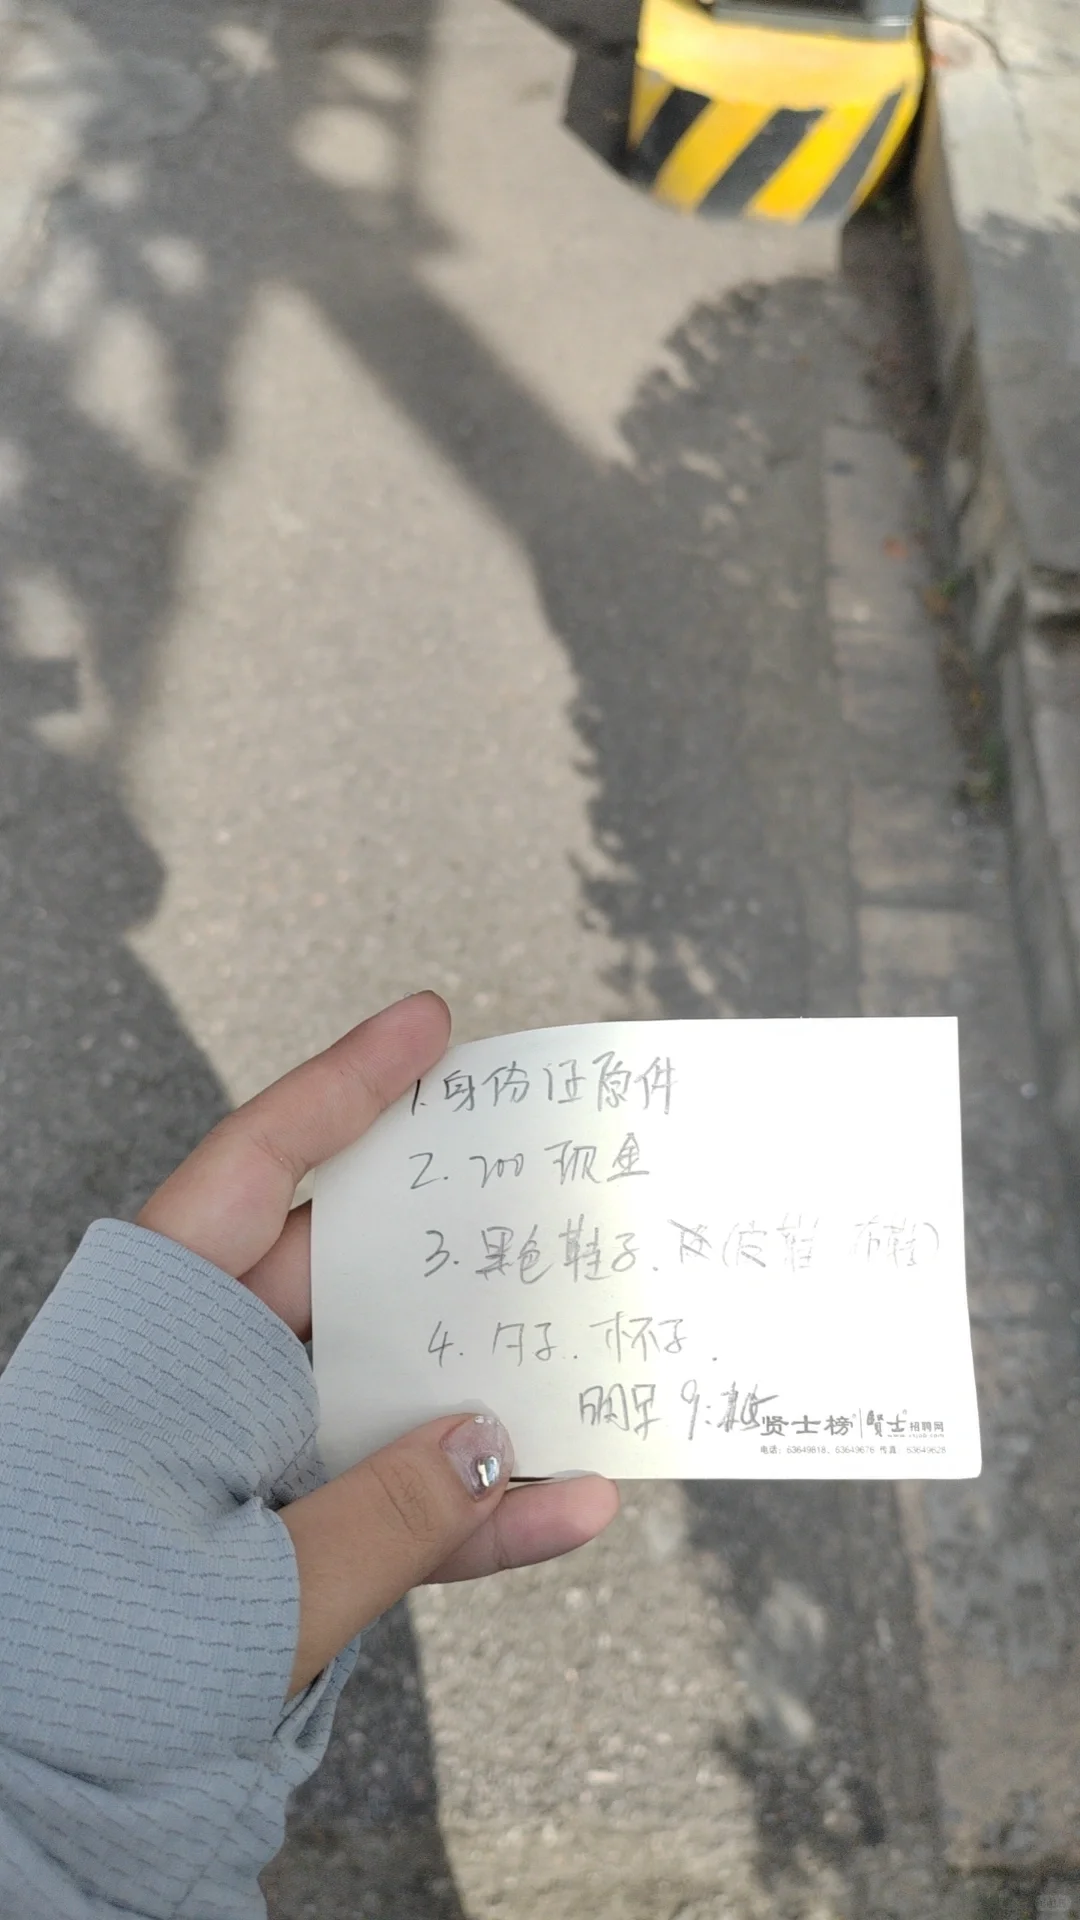 1. 身份证原件
2. 200 现金
3. 黑色鞋子. (皮鞋 布鞋)
4. 勺子. 杯子.
明早 9:
贤士榜 贤士招聘网
电话：63649818、63649678 传真：63649628